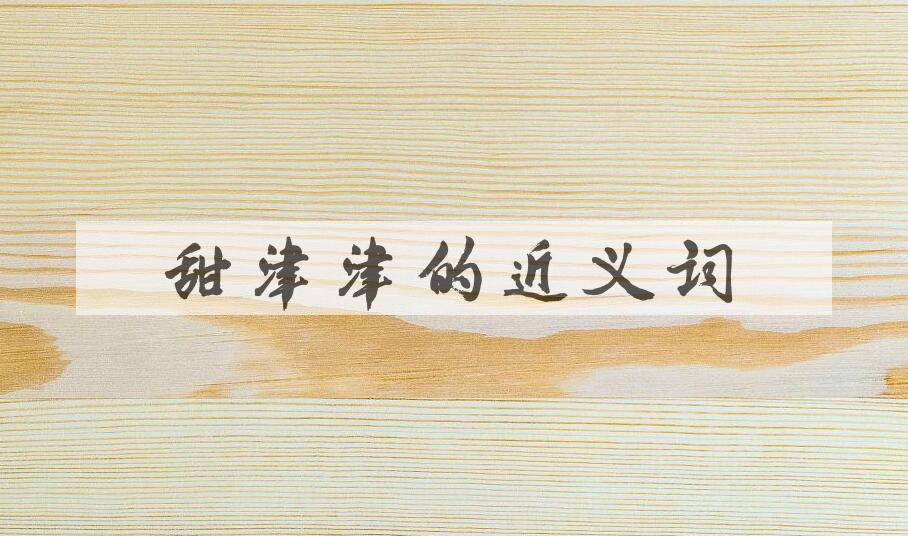 甜津津的近义词